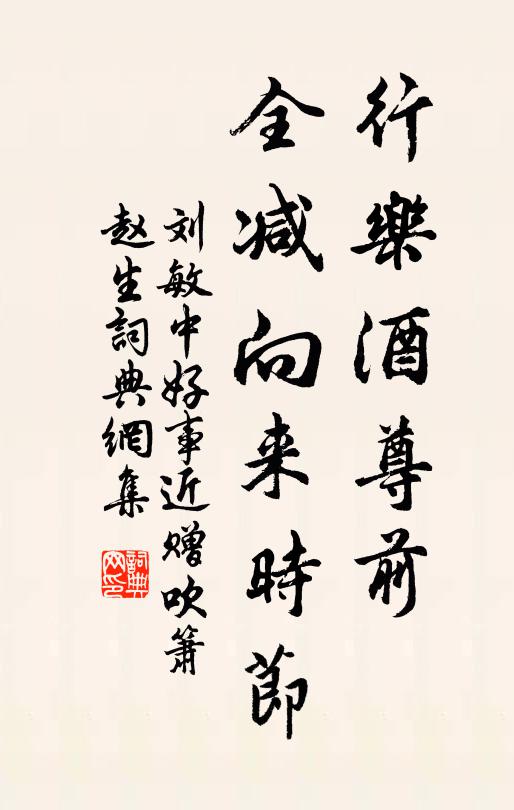 行樂酒尊前
全减向来時節
刘敏中好事近赠吹簫
赵生詞典網集
詞典網印